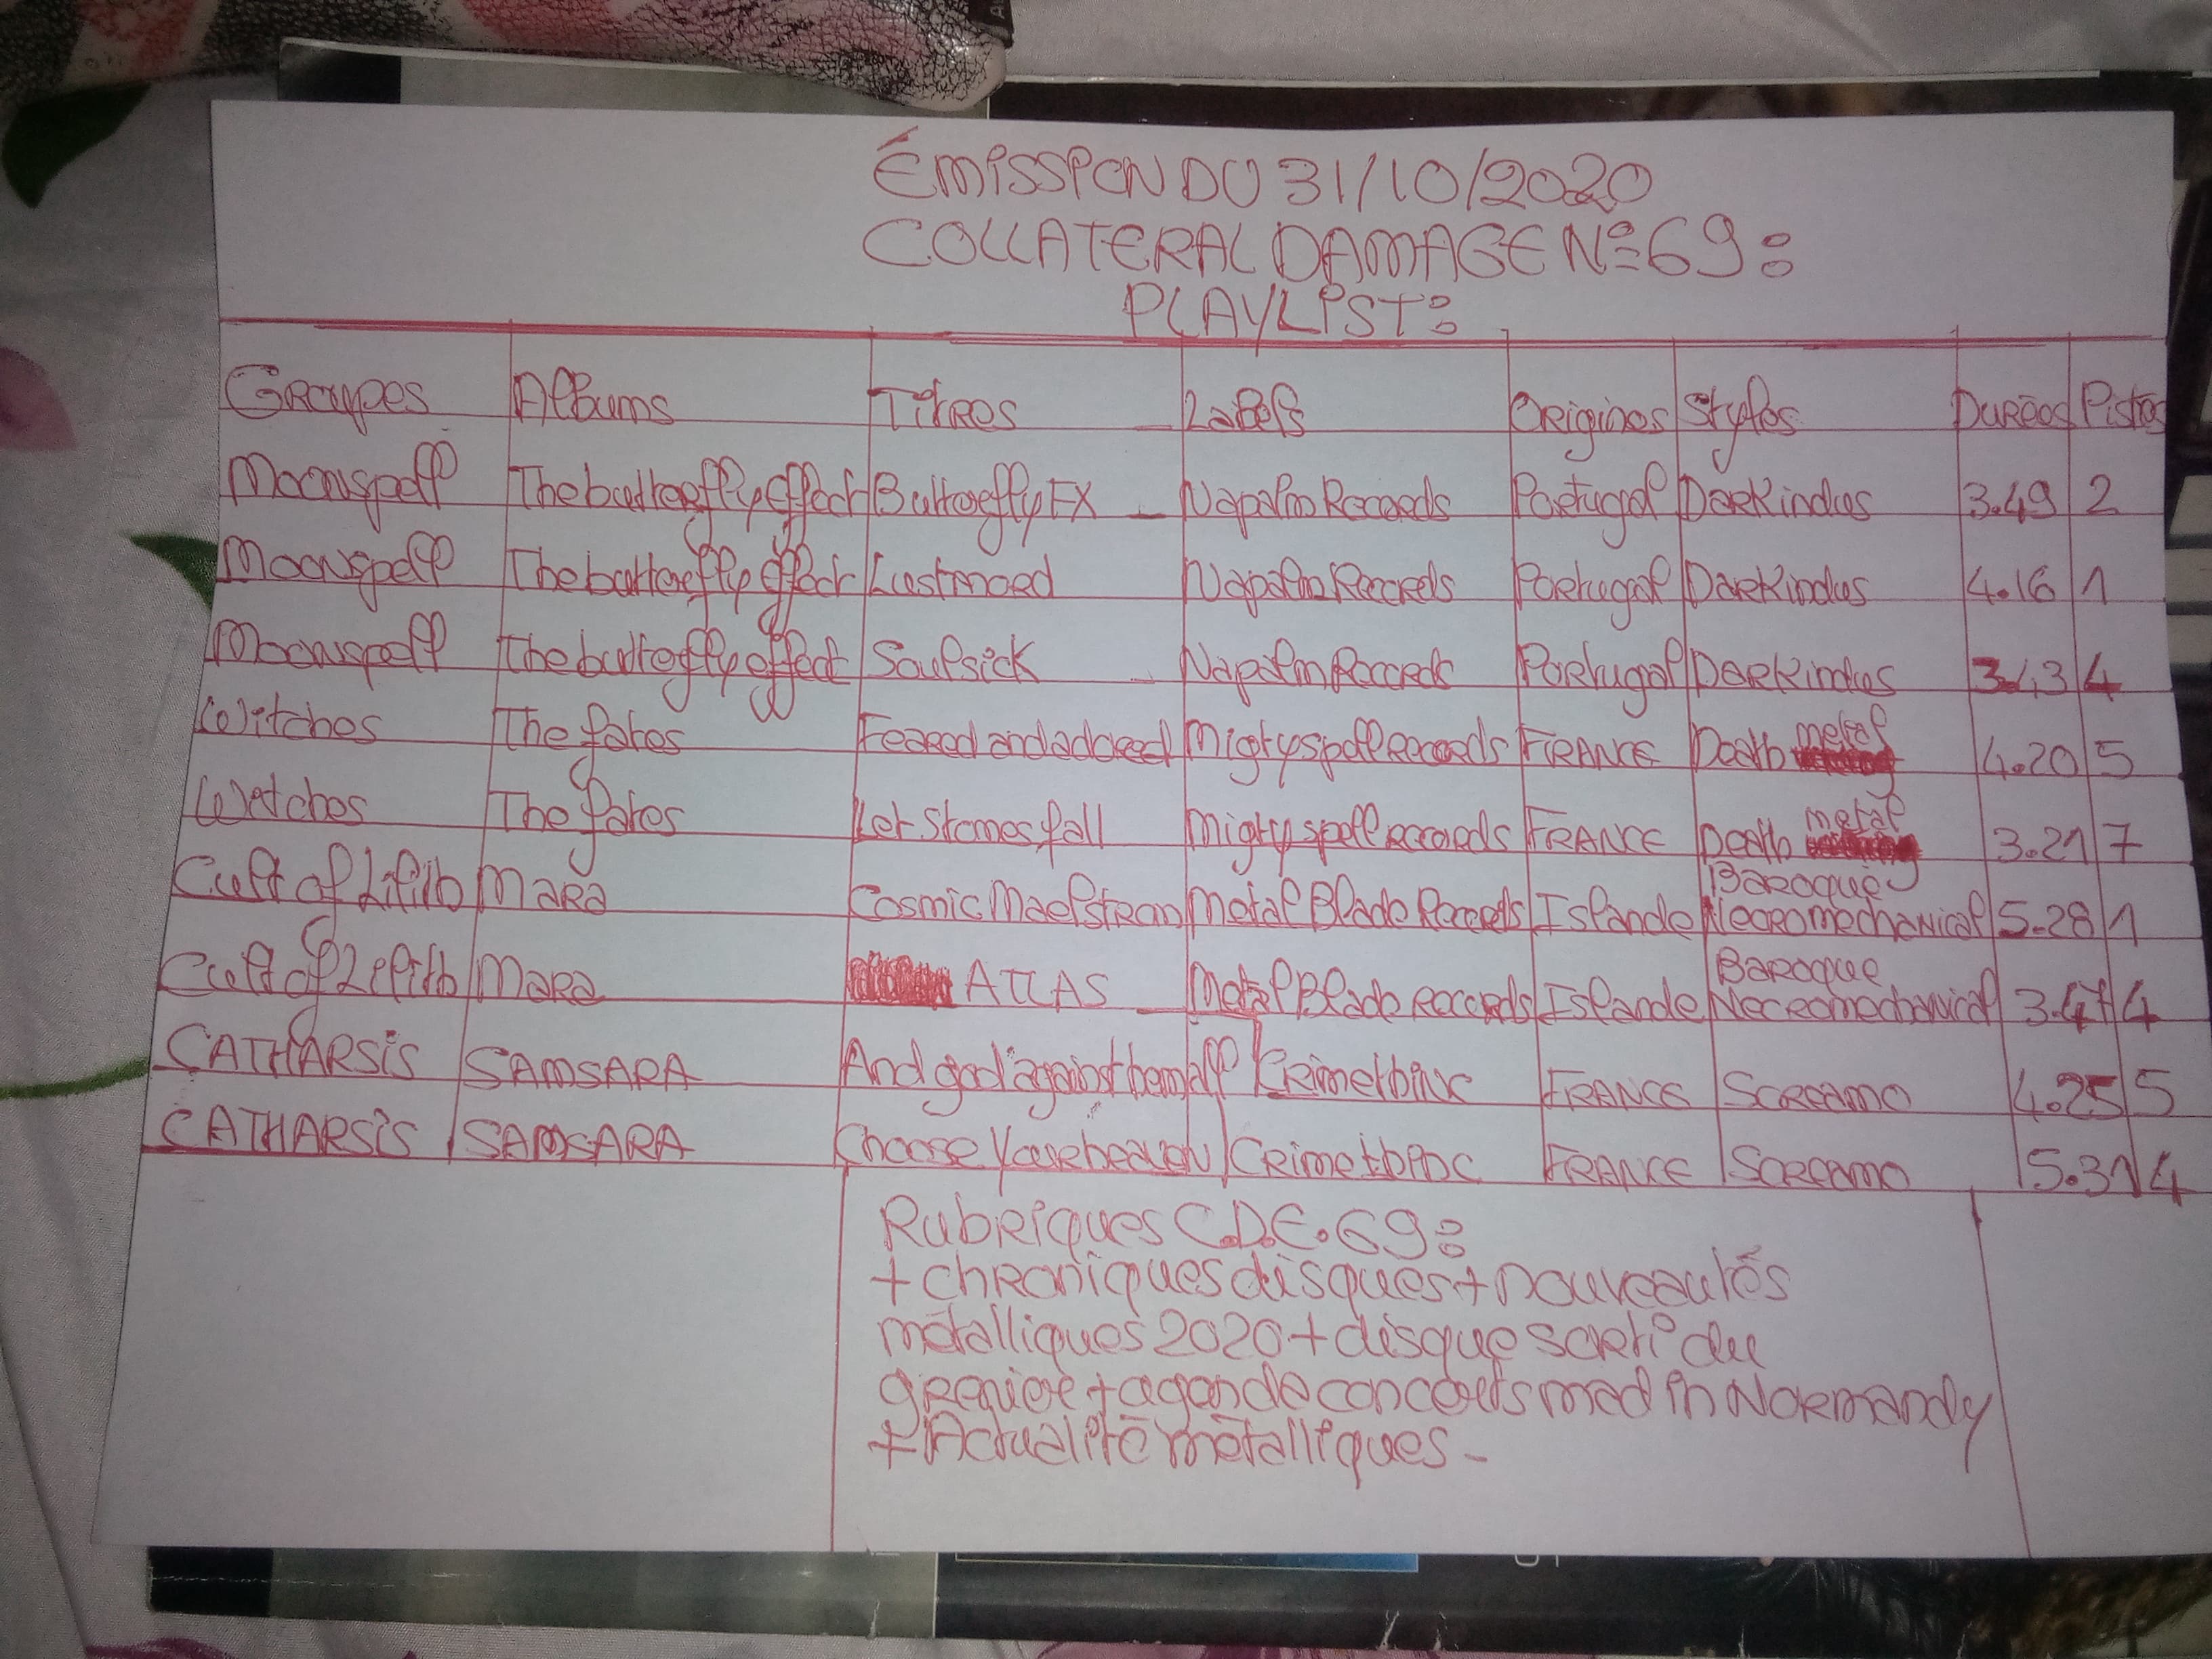 ÉMISSION DU 31/10/2020
COLLATERAL DAMAGE N°69:
PLAYLIST:
Groupes Albums Titres Labels Origines Styles Durées Pistes
Moonspell The butterfly effect Butterfly FX Napalm Records Portugal Dark indus 3.49 2
Moonspell The butterfly effect Lustmord Napalm Records Portugal Dark indus 4.16 1
Moonspell The butterfly effect Soulsick Napalm Records Portugal Dark indus 4
Witches The fates Feared and adored Migty spell records FRANCE Death metal 4.20 5
Witches The fates Let Stones fall Migty spell records FRANCE Death metal 3.21 7
Cult of Lilith Mara Cosmic Maelstrom Metal Blade Records Islande Baroque Necromechanical 5.28 1
Cult of Lilith Mara ATLAS Metal Blade records Islande Baroque Necromechanical 4
CATHARSIS SAMSARA And god against them all FRANCE Screamo 4.25 5
CATHARSIS SAMSARA Choose Your heaven FRANCE Screamo 5.31 4
Rubriques C.D.E.69:
+ chroniques disques + nouveautés
métalliques 2020 + disque sorti du
grenier + agenda concerts mad in Normandy
+ Actualité métalliques -